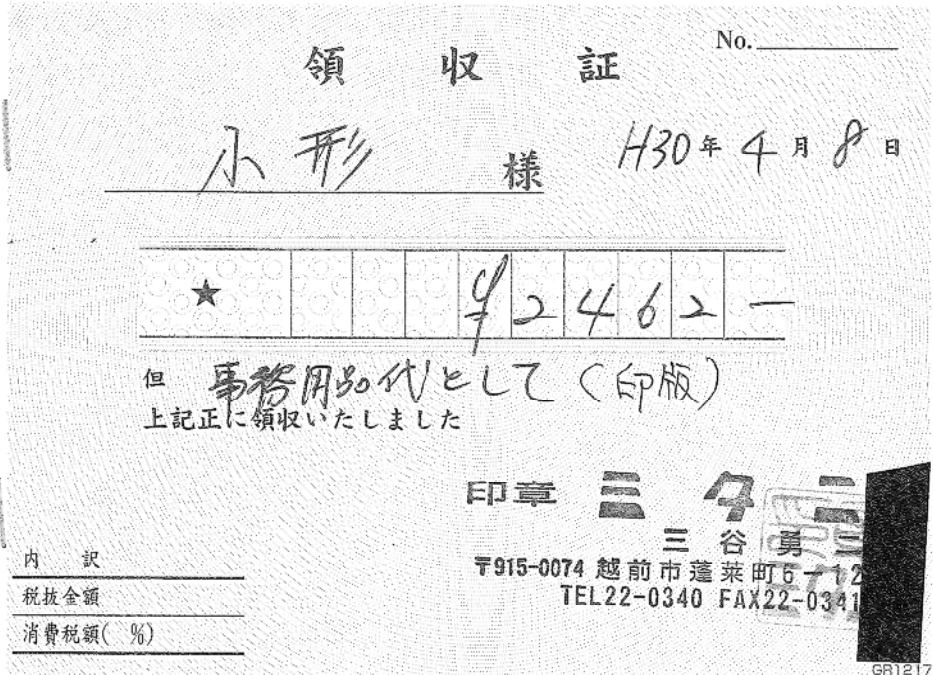 領収証
No.
小形 様
H30年4月8日
★ ¥2462-
但 事務用品代として(印版)
上記正に領収いたしました
印章 ミタニ
三谷勇三
〒915-0074 越前市蓬莱町6-12
TEL22-0340 FAX22-0341
内 訳
税抜金額
消費税額( %)
GB1217